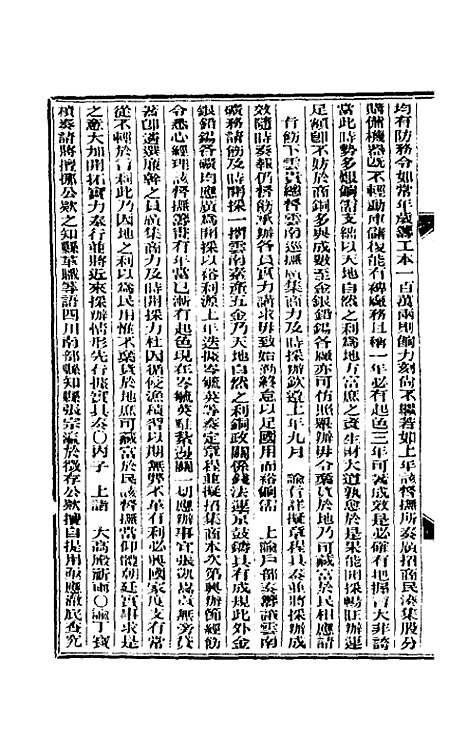 均有防務今如常年歲籌工本一百萬兩則餉力刻尚不繼著如上年該督撫所奏廣招商民湊集股分
購備機器既不輕動庫儲復能有裨廠務且稱一年必有起色三年可著成效是必確有地掘言大非誇
當此時勢多艱餉需支絀以天地自然之利為地方富庶之資生財大道孰愈於是果能開採暢旺辦運
足額卽不妨於商銅多與成數至金銀鉛錫各廠亦可仿照舉辦毋令棄貨於地乃可藏富於民相應請
旨飭下雲貴總督雲南巡撫廣集商力及時採辦欽遵上年九月 諭旨詳擬章程具奏並將採辦成
效隨時奏報仍督飭承辦各員實力講求毋致始勤終怠以足國用而裕餉需 上諭戶部奏籌議雲南
礦務請飭及時開採一摺雲南素產五金乃天地自然之利銅政關係錢法運京鼓鑄具有成規此外金
銀鉛錫各礦均應廣為開採以裕利源上年迭據岑毓英等奏定章程並擬招集商本次第興辦節經飭
令悉心經理該督撫籌畫有年當已漸有起色現在岑毓英駐紮邊關一切應辦事宜張凱嵩責無旁貸
著卽遴選廉幹之員廣集商力及時開採力杜因循侵漁積習以期無弊不革有利必興國家度支有常
從不輕於言利此乃因地之利以為民用惟不棄貨於地庶可藏富於民該督撫當仰體朝廷實事求是
之意大加開拓實力奉行並將近來採辦情形先行據實具奏○丙子 上詣 大高殿祈雨○丁寶
楨奏請將擅挪公款之知縣革職等語四川南部縣知縣張宗瀛於徵存公款擅自提用亟應澈底查究